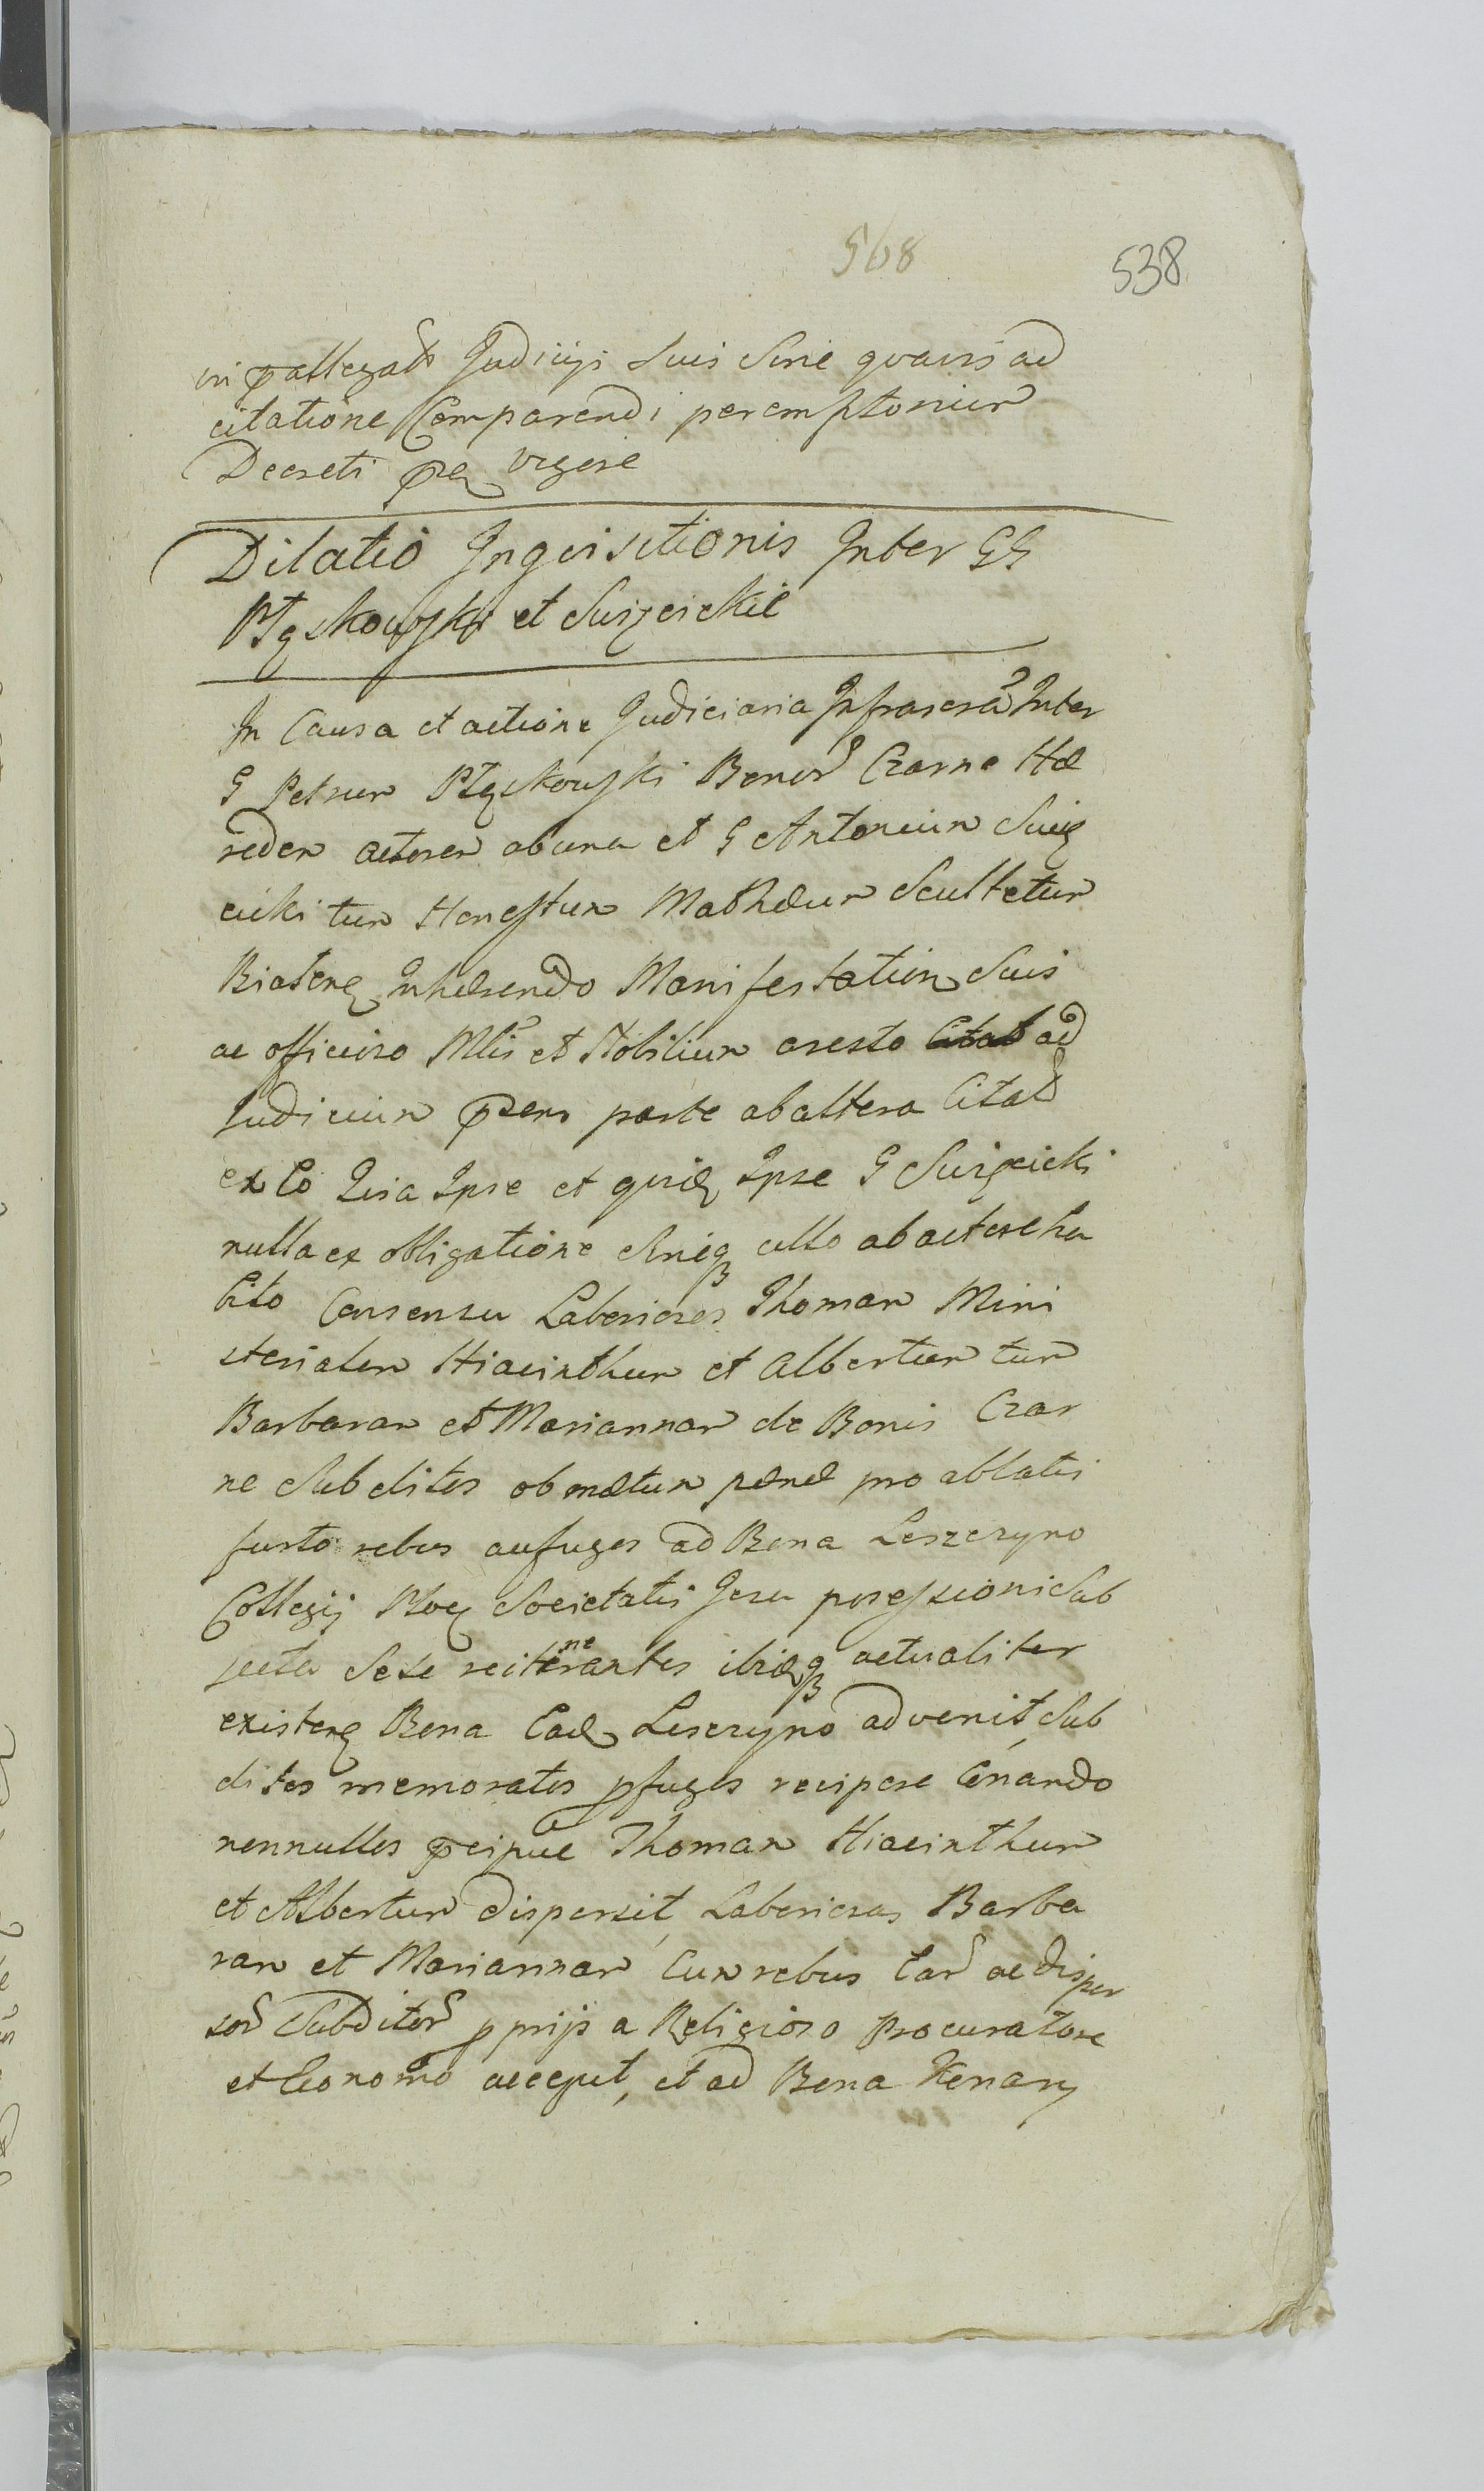 568
538
in pallegatis Judicijs suis sine quavis ad
citatione Comparendi peremptorium
Decreti pñ vigore
Dilatio Inqvisitionis Inter GG
Ptąskowski et Suięcickie
In Causa et actione Judiciaria Infrascrã Inter
G Petrum Ptąskowski Bonor Czarne Hæ
redem actorem ab una et G Antonium Suię
cicki tum Honestum Mathæum Scultetum
Inhærendo Manifestation Suis
ac officioso Mlis et Nobilium aresto ad
Judicium pñs parte ab altera Citat
ex eo Quia Ipse et quid Ipse G Suięcicki
nulla ex obligatione Aniq ullo ab actore ha
bito Consensu Laboriosos Thomam Mini
sterialem Hiacinthum et Albertum tum
Barbaram et Mariannam de Bonis Czar
ne Subditos ob metum pænæ pro ablatis
furto rebus aufugos ad Bona Leszczyno
Collegij Ploc Societatis Jesu possessioni Sub
jecta Sese recitinerantes ibidq actualiter
existen Bona Ead Lesczyno advenit, Sub
ditos memoratos pfugos recipere Conando
nonnullos pcipue Thomam Hiacinthum
et Albertum dispersit, Laboriosas Barba
ram et Mariannam Cum rebus Ear ac disper
sor Subditor pprijs a Religioso Procuratore
et Oeconomo accepit, et ad Bona Konary